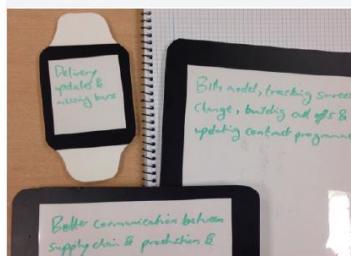 Delivery
updates &
missing
BIM model, tracking
change, building call offs &
updating contract programme
Better communication between
supply chain & production &